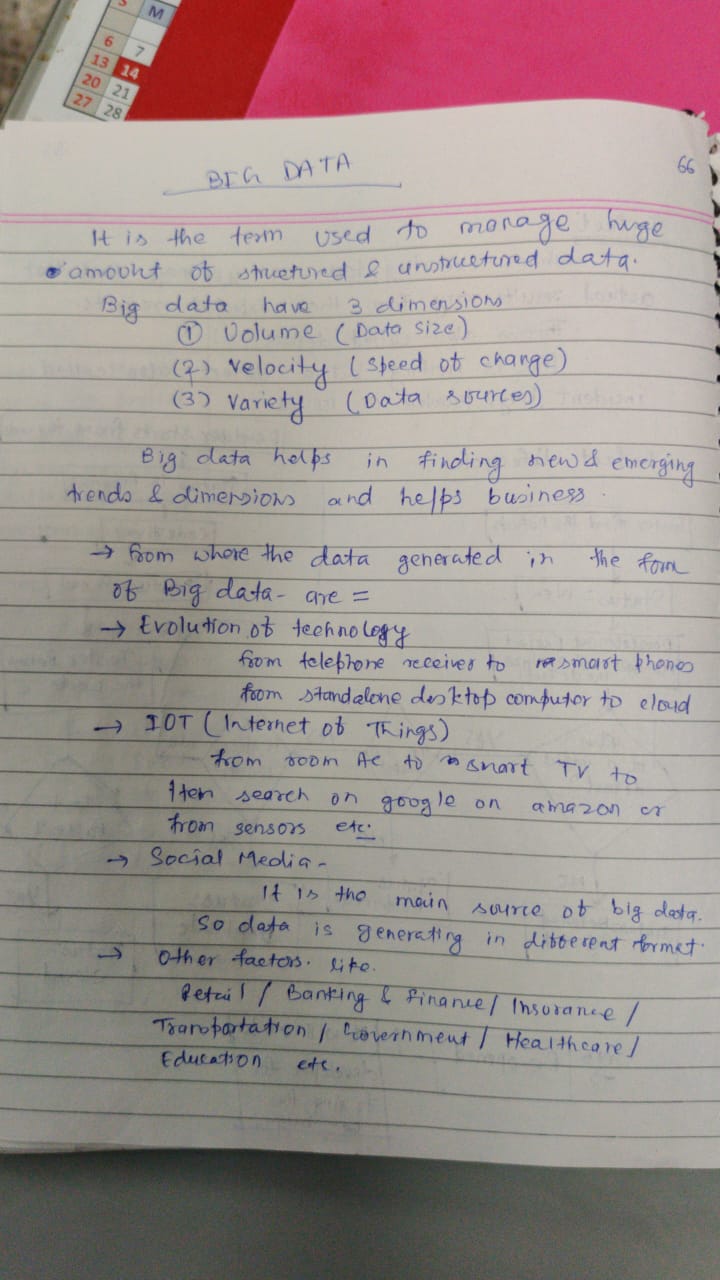 S M
6 7
13 14
20 21
27 28
66
BIG DATA
It is the term used to manage huge
amount of structured & unstructured data.
Big data have 3 dimensions
① Volume (Data size)
(2) Velocity (Speed of change)
(3) Variety (Data sources)
Big data helps in finding new & emerging
trends & dimensions and helps business.
→ from where the data generated in the form
of Big data- are =
→ Evolution of technology
from telephone receiver to smart phones
from standalone desktop computer to cloud
→ IOT (Internet of Things)
from room AC to smart TV to
Item search on google on amazon or
from sensors etc.
→ Social Media -
It is the main source of big data.
So data is generating in different format.
→ Other factors. like.
Retail / Banking & Finance / Insurance /
Transportation / Government / Healthcare /
Education etc.